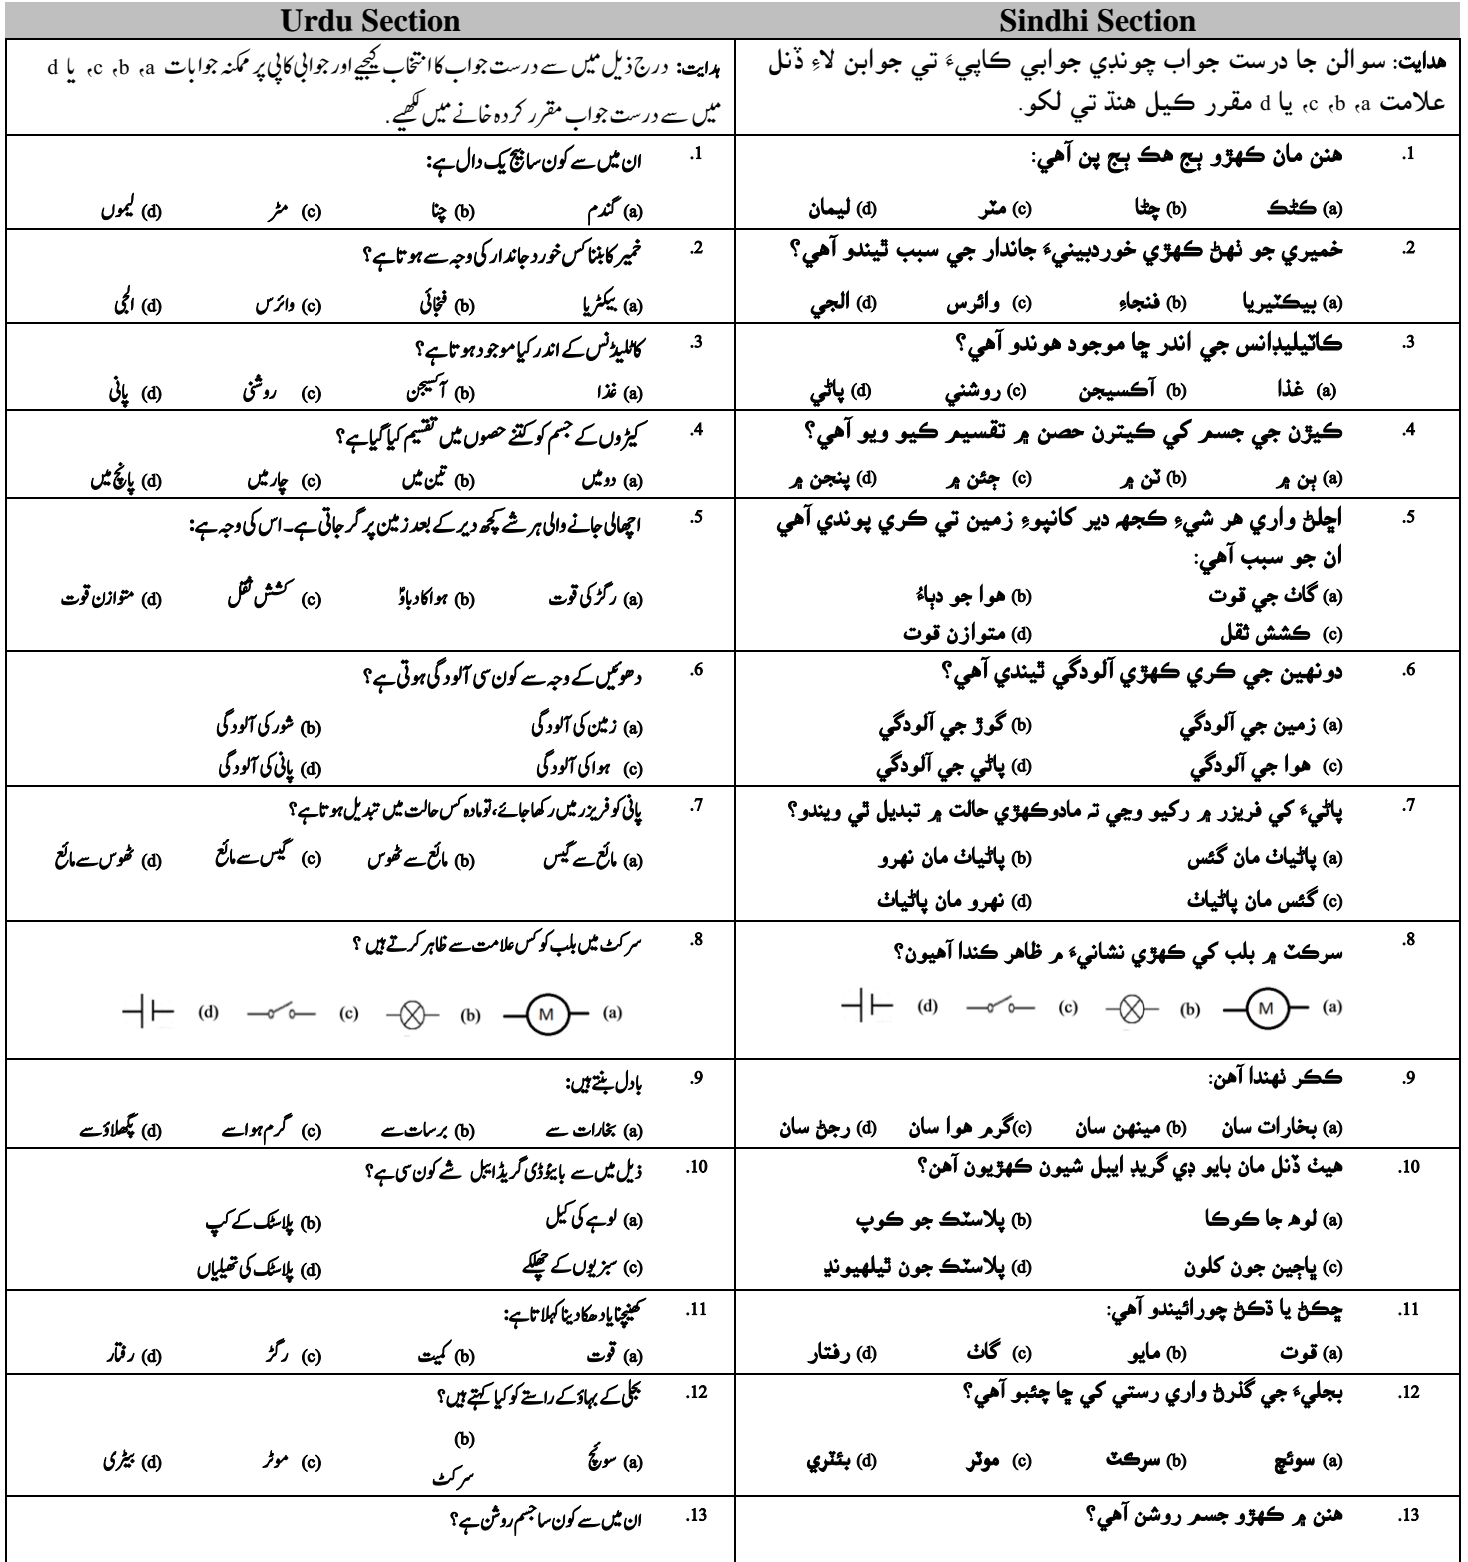 Urdu Section
ہدایت: درج ذیل میں سے درست جواب کا انتخاب کیجیے اور جوابی کاپی پر ممکنہ جوابات a، b، c، یا d
میں سے درست جواب مقرر کردہ خانے میں لکھیے۔
1. ان میں سے کون سا بیج یک دال ہے:
(a) گندم (b) چنا (c) مٹر (d) لیموں
2. خمیر کا بننا کس خورد جاندار کی وجہ سے ہوتا ہے؟
(a) بیکٹریا (b) فنجائی (c) وائرس (d) الجی
3. کاٹلیڈنس کے اندر کیا موجود ہوتا ہے؟
(a) غذا (b) آکسیجن (c) روشنی (d) پانی
4. کیڑوں کے جسم کو کتنے حصوں میں تقسیم کیا گیا ہے؟
(a) دو میں (b) تین میں (c) چار میں (d) پانچ میں
5. اچھالی جانے والی ہر شے کچھ دیر کے بعد زمین پر گر جاتی ہے۔ اس کی وجہ ہے:
(a) رگڑ کی قوت (b) ہوا کا دباؤ (c) کشش ثقل (d) متوازن قوت
6. دھوئیں کے وجہ سے کون سی آلودگی ہوتی ہے؟
(a) زمین کی آلودگی (b) شور کی آلودگی
(c) ہوا کی آلودگی (d) پانی کی آلودگی
7. پانی کو فریزر میں رکھا جائے، تو مادہ کس حالت میں تبدیل ہوتا ہے؟
(a) مائع سے گیس (b) مائع سے ٹھوس (c) گیس سے مائع (d) ٹھوس سے مائع
8. سرکٹ میں بلب کو کس علامت سے ظاہر کرتے ہیں ؟
(a) M (b) (c) (d)
9. بادل بنتے ہیں:
(a) بخارات سے (b) برسات سے (c) گرم ہوا سے (d) پگھلاؤ سے
10. ذیل میں سے بائیوڈی گریڈ ایبل شے کون سی ہے؟
(a) لوہے کی کیل (b) پلاسٹک کے کپ
(c) سبزیوں کے چھلکے (d) پلاسٹک کی تھیلیاں
11. کھینچنا یا دھکا دینا کہلاتا ہے:
(a) قوت (b) کمیت (c) رگڑ (d) رفتار
12. بجلی کے بہاؤ کے راستے کو کیا کہتے ہیں؟
(b)
(a) سوئچ (c) موٹر (d) بیٹری
سرکٹ
13. ان میں سے کون سا جسم روشن ہے؟
Sindhi Section
هدايت: سوالن جا درست جواب چونڊي جوابي ڪاپيءَ تي جوابن لاءِ ڏنل
علامت a، b، c، يا d مقرر ڪيل هنڌ تي لکو.
1. هنن مان ڪهڙو ٻج هڪ ٻج پن آهي:
(a) ڪڻڪ (b) چڻا (c) مٽر (d) ليمان
2. خميري جو ٺهڻ ڪهڙي خوردبينيءَ جاندار جي سبب ٿيندو آهي؟
(a) بيڪٽيريا (b) فنجاءِ (c) وائرس (d) الجي
3. ڪاٽيليڊانس جي اندر ڇا موجود هوندو آهي؟
(a) غذا (b) آڪسيجن (c) روشني (d) پاڻي
4. ڪيڙن جي جسم کي ڪيترن حصن ۾ تقسيم ڪيو ويو آهي؟
(a) ٻن ۾ (b) ٽن ۾ (c) چئن ۾ (d) پنجن ۾
5. اڇلڻ واري هر شيءِ ڪجهه دير کانپوءِ زمين تي ڪري پوندي آهي
ان جو سبب آهي:
(a) گاٺ جي قوت (b) هوا جو دٻاءُ
(c) ڪشش ثقل (d) متوازن قوت
6. دونهين جي ڪري ڪهڙي آلودگي ٿيندي آهي؟
(a) زمين جي آلودگي (b) گوڙ جي آلودگي
(c) هوا جي آلودگي (d) پاڻي جي آلودگي
7. پاڻيءَ کي فريزر ۾ رکيو وڃي ته مادوڪهڙي حالت ۾ تبديل ٿي ويندو؟
(a) پاڻياٺ مان گئس (b) پاڻياٺ مان نهرو
(c) گئس مان پاڻياٺ (d) نهرو مان پاڻياٺ
8. سرڪٽ ۾ بلب کي ڪهڙي نشانيءَ م ظاهر ڪندا آهيون؟
(a) M (b) (c) (d)
9. ڪڪر ٺهندا آهن:
(a) بخارات سان (b) مينهن سان (c)گرم هوا سان (d) رجڻ سان
10. هيٺ ڏنل مان بايو ڊي گريڊ ايبل شيون ڪهڙيون آهن؟
(a) لوهه جا ڪوڪا (b) پلاسٽڪ جو ڪوپ
(c) ڀاڄين جون کلون (d) پلاسٽڪ جون ٿيلهيوند
11. ڇڪڻ يا ڌڪڻ چورائيندو آهي:
(a) قوت (b) مايو (c) گاٺ (d) رفتار
12. بجليءَ جي گذرڻ واري رستي کي ڇا چئبو آهي؟
(a) سوئچ (b) سرڪٽ (c) موٽر (d) بئٽري
13. هنن ۾ ڪهڙو جسم روشن آهي؟